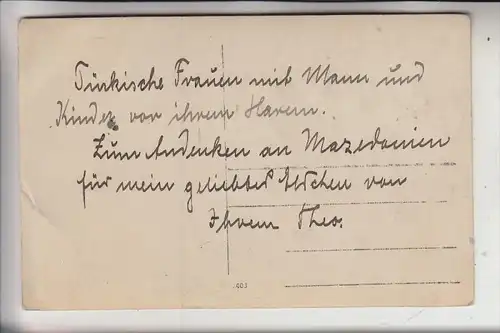 Türkische Frauen mit Mann und
Kinder vor ihrem Harem.
Zum Andenken an Mazedonien
für mein geliebtes von
Ihrem Theo.